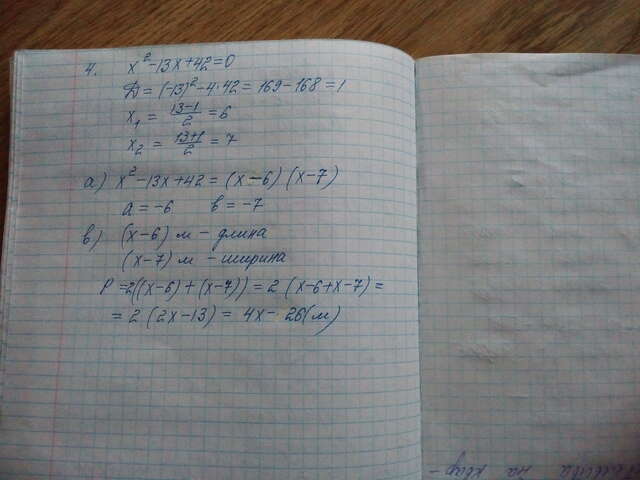 4. x²-13x+42=0
D=(-13)²-4·42=169-168=1
x₁ = (13-1)/2 = 6
x₂ = (13+1)/2 = 7
а) x²-13x+42=(x-6)(x-7)
a=-6 в=-7
в) (x-6) м - длина
(x-7) м - ширина
P=2((x-6)+(x-7))=2(x-6+x-7)=
=2(2x-13)=4x-26(м)
на